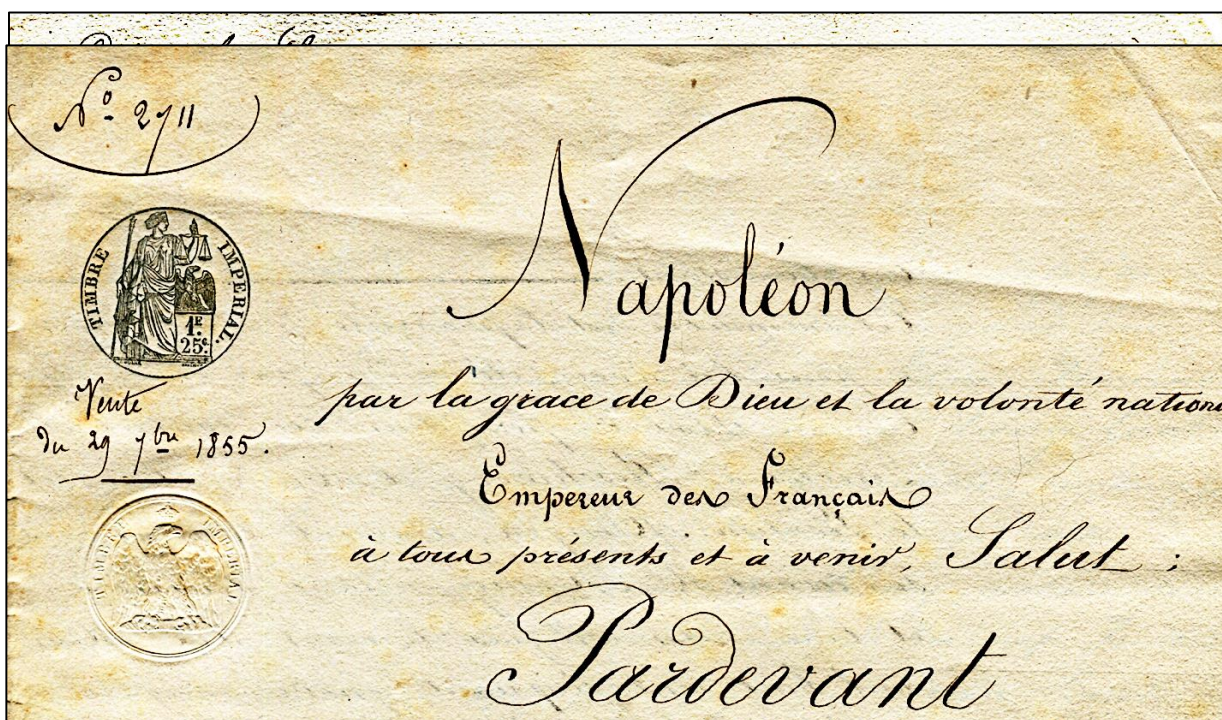 Nº 2711
TIMBRE IMPERIAL.
1F.
25c.
Vente
du 29 7bre 1855.
TIMBRE IMPERIAL
Napoléon
par la grace de Dieu et la volonté nation
Empereur des Français
à tous présents et à venir, Salut :
Pardevant